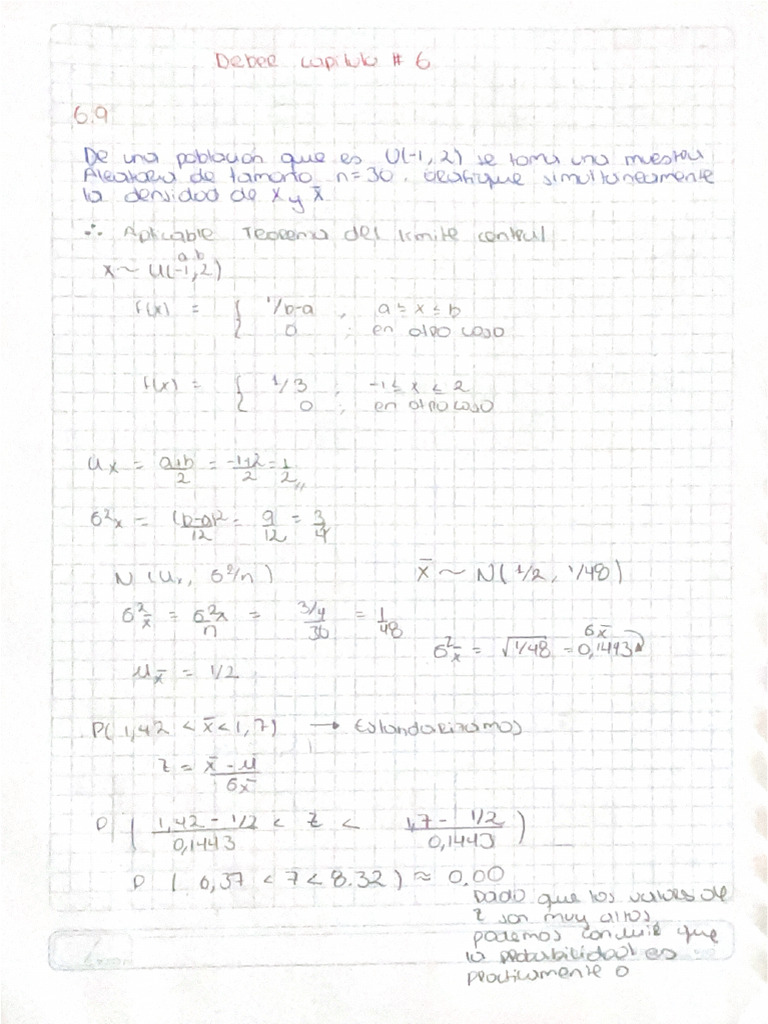 Deber capitulo # 6
6.9
De una población que es U(-1, 2) se toma una muestra
Aleatoria de tamaño n=36. Grafique simultaneamente
la densidad de x y x̄
∴ Aplicable Teorema del limite central
a b
x ~ U(-1, 2)
f(x) = { 1/b-a , a ≤ x ≤ b
0 ; en otro caso
f(x) = { 1/3 ; -1 ≤ x ≤ 2
0 ; en otro caso
ux = a+b/2 = -1+2/2 = 1/2
σ²x = (b-a)²/12 = 9/12 = 3/4
N (ux, σ²/n) x̄ ~ N(1/2, 1/48)
σ²x̄ = σ²x/n = 3/4/36 = 1/48
σ²x̄ = √1/48 = 0,1443 σx̄
ux̄ = 1/2
P(1,42 < x̄ < 1,7) → Estandarizamos
z = x̄ - u/σx̄
P ( 1,42 - 1/2 / 0,1443 < z < 1,7 - 1/2 / 0,1443 )
P ( 6,37 < z < 8.32) ≈ 0.00
Dado que los valores de
z son muy altos,
podemos concluir que
la probabilidad es
practicamente 0